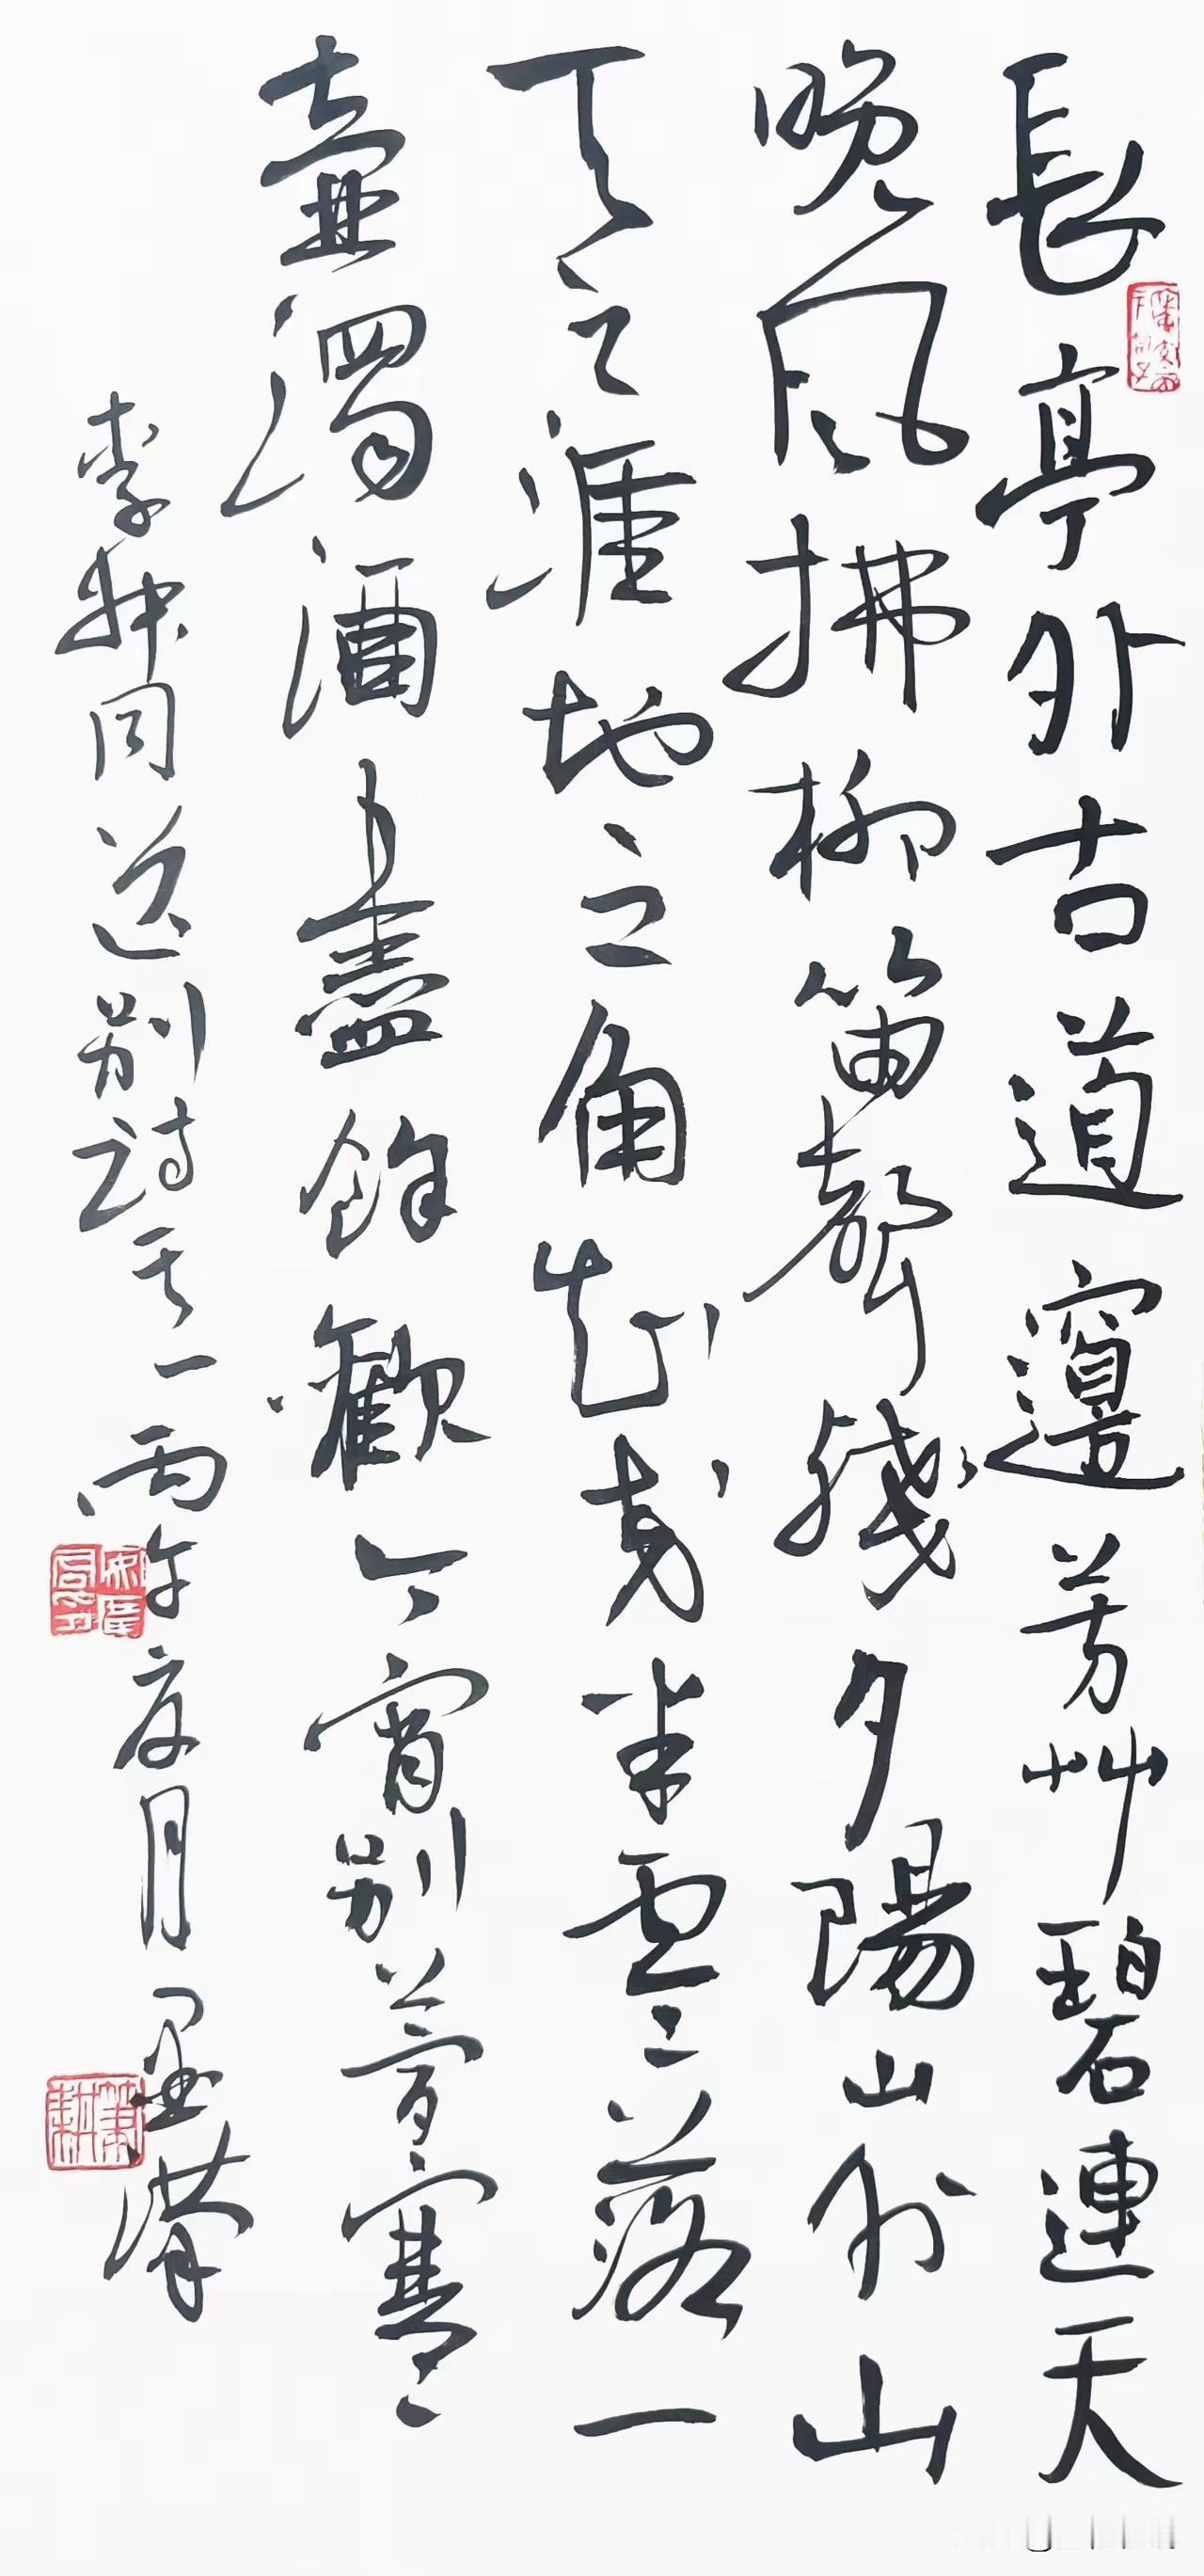 長亭外古道邊芳艸碧連天
晚風拂柳笛聲殘夕陽山外山
天之涯地之角知交半零落一
壺濁酒盡餘歡今宵別夢寒
李叔同送别詩其一丙午夏月墨
筆耕